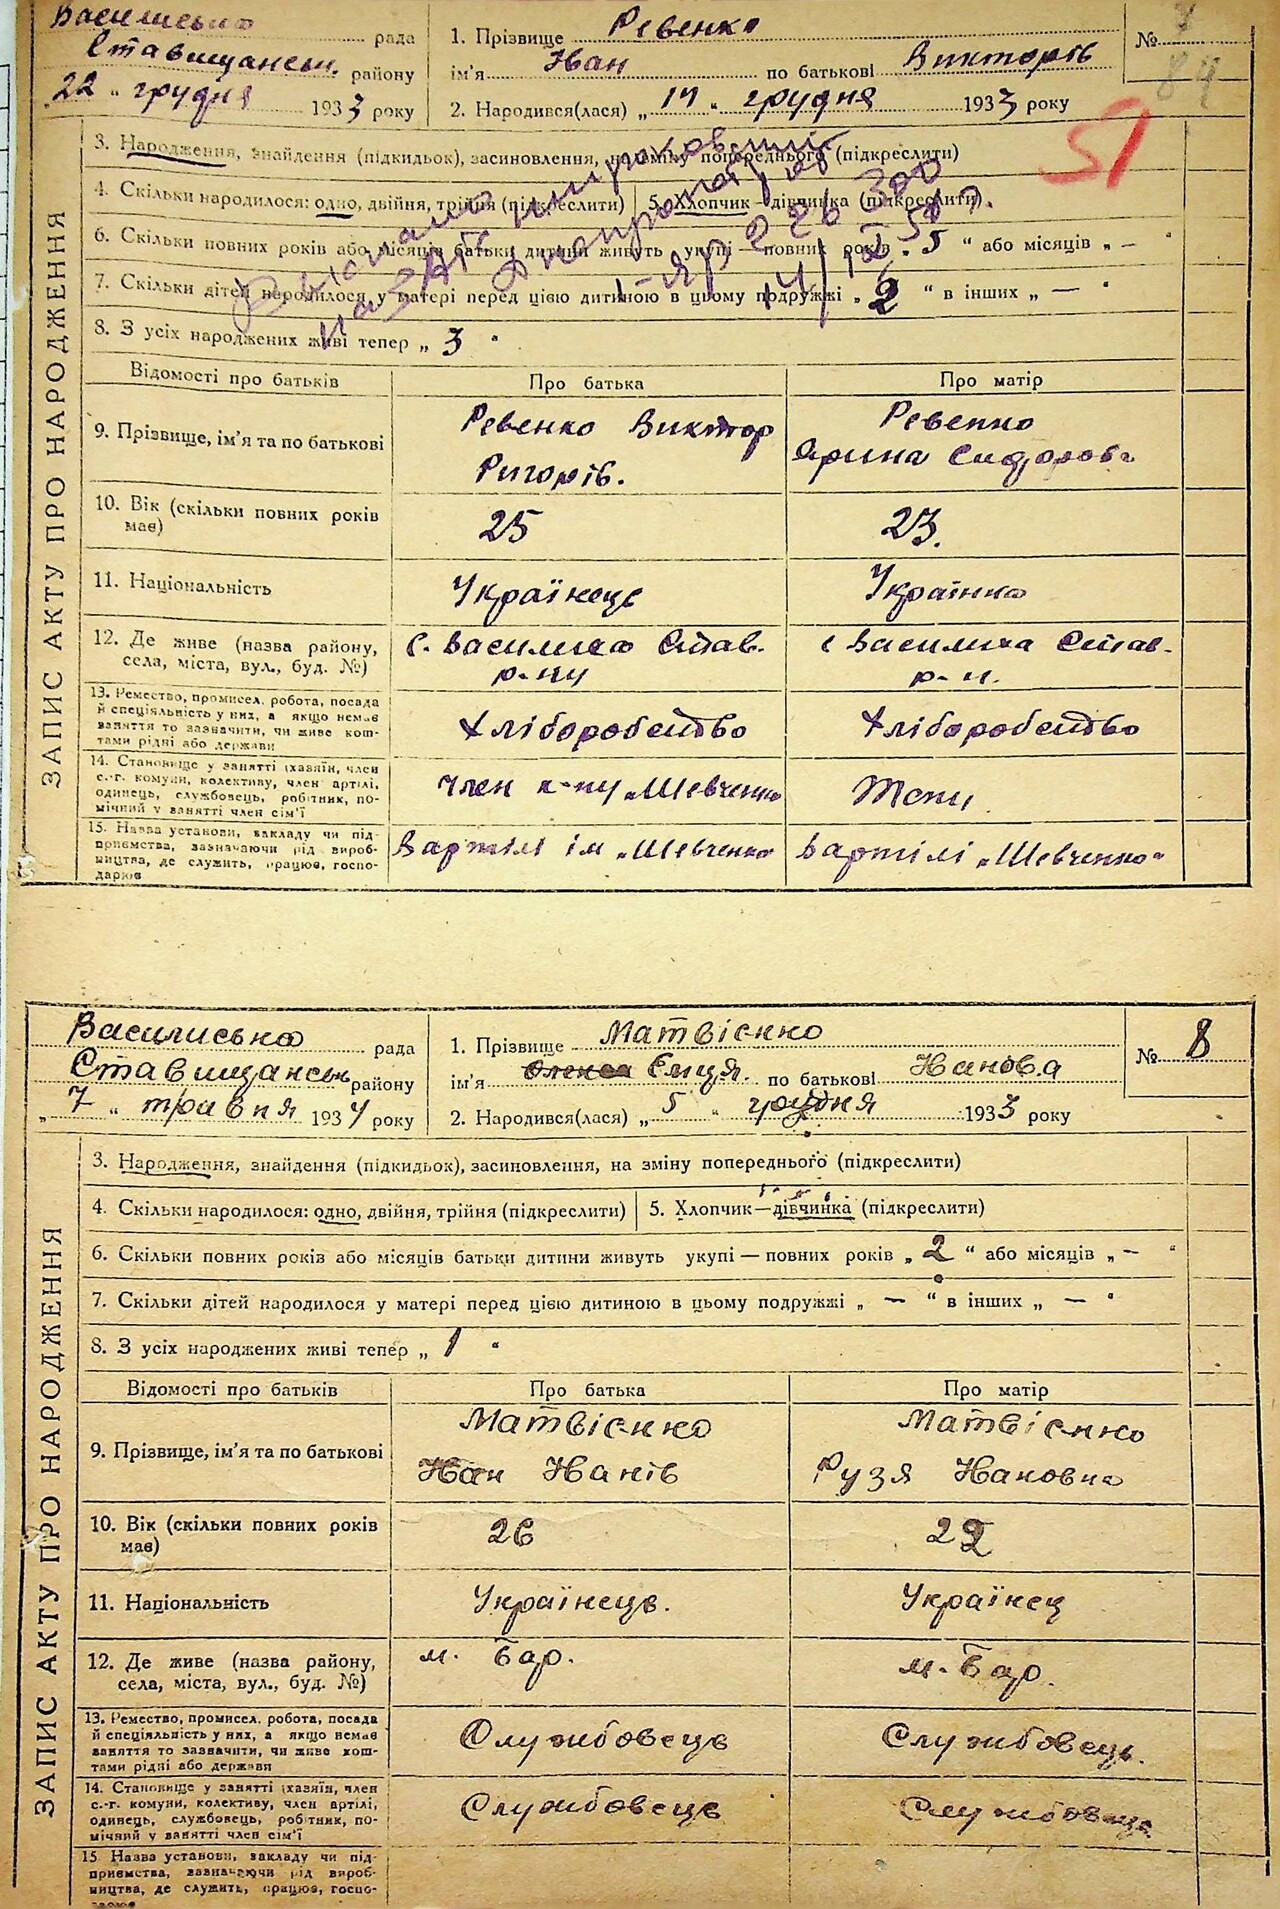 Василиська рада
Ставищанськ. району
22 „ грудня 1933 року
1. Прізвище Ревенко
ім'я Іван по батькові Викторів
2. Народився(лася) „ 14 “ грудня 1933 року
№ 7
84
51
ЗАПИС АКТУ ПРО НАРОДЖЕННЯ
3. Народження, знайдення (підкидьок), засиновлення, на зміну попереднього (підкреслити)
4. Скільки народилося: одно, двійня, трійня (підкреслити) 5. Хлопчик — дівчинка (підкреслити).
6. Скільки повних років або місяців батьки дитини живуть укупі — повних років „ 5 “ або місяців „ — “
7. Скільки дітей народилося у матері перед цією дитиною в цьому подружжі „ 2 “ в інших „ — “
8. З усіх народжених живі тепер „ 3 “
Відомості про батьків Про батька Про матір
9. Прізвище, ім'я та по батькові
Ревенко Виктор
Ригорів.
Ревенко
Ярина Сидоров
10. Вік (скільки повних років
має)
25 23.
11. Національність Українець Українка
12. Де живе (назва району,
села, міста, вул., буд. №)
с. Василиха Став.
р-ну
с Василиха Став.
р-н.
13. Ремество, промисел, робота, посада
й спеціяльність у них, а якщо немає
заняття то зазначити, чи живе кош-
тами рідні або держави
Хліборобство Хліборобство
14. Становище у занятті (хазяїн, член
с.-г. комуни, колективу, член артілі,
одинець, службовець, робітник, по-
мічний у занятті член сім'ї
член к-пу „Шевченко
15. Назва установи, закладу чи під-
приємства, зазначаючи рід вироб-
ництва, де служить, працює, госпо-
дарює
Вартілі ім „Шевченко“ Вартілі „Шевченко“
Василиська рада
Ставищанськ району
„ 7 „ травня 1934 року
1. Прізвище Матвієнко
ім'я Олекса Емця. по батькові Іванова
2. Народився(лася) „ 5 “ грудня 1933 року
№ 8
ЗАПИС АКТУ ПРО НАРОДЖЕННЯ
3. Народження, знайдення (підкидьок), засиновлення, на зміну попереднього (підкреслити)
4. Скільки народилося: одно, двійня, трійня (підкреслити) 5. Хлопчик — дівчинка (підкреслити)
6. Скільки повних років або місяців батьки дитини живуть укупі — повних років „ 2 “ або місяців „ — “
7. Скільки дітей народилося у матері перед цією дитиною в цьому подружжі „ — “ в інших „ — “
8. З усіх народжених живі тепер „ 1 “
Відомості про батьків Про батька Про матір
9. Прізвище, ім'я та по батькові
Матвієнко
Іван Іванів
Матвієнко
Рузя Івановна
10. Вік (скільки повних років
має)
26 22
11. Національність Українець. Українец
12. Де живе (назва району,
села, міста, вул., буд. №)
м. Бар. м. Бар.
13. Ремество, промисел, робота, посада
й спеціяльність у них, а якщо немає
заняття то зазначити, чи живе кош-
тами рідні або держави
Службовець Службовець.
14. Становище у занятті (хазяїн, член
с.-г. комуни, колективу, член артілі,
одинець, службовець, робітник, по-
мічний у занятті член сім'ї
Службовець Службовець
15 Назва установи, закладу чи під-
приємства, зазначаючи рід вироб-
ництва, де служить, працює, госпо-